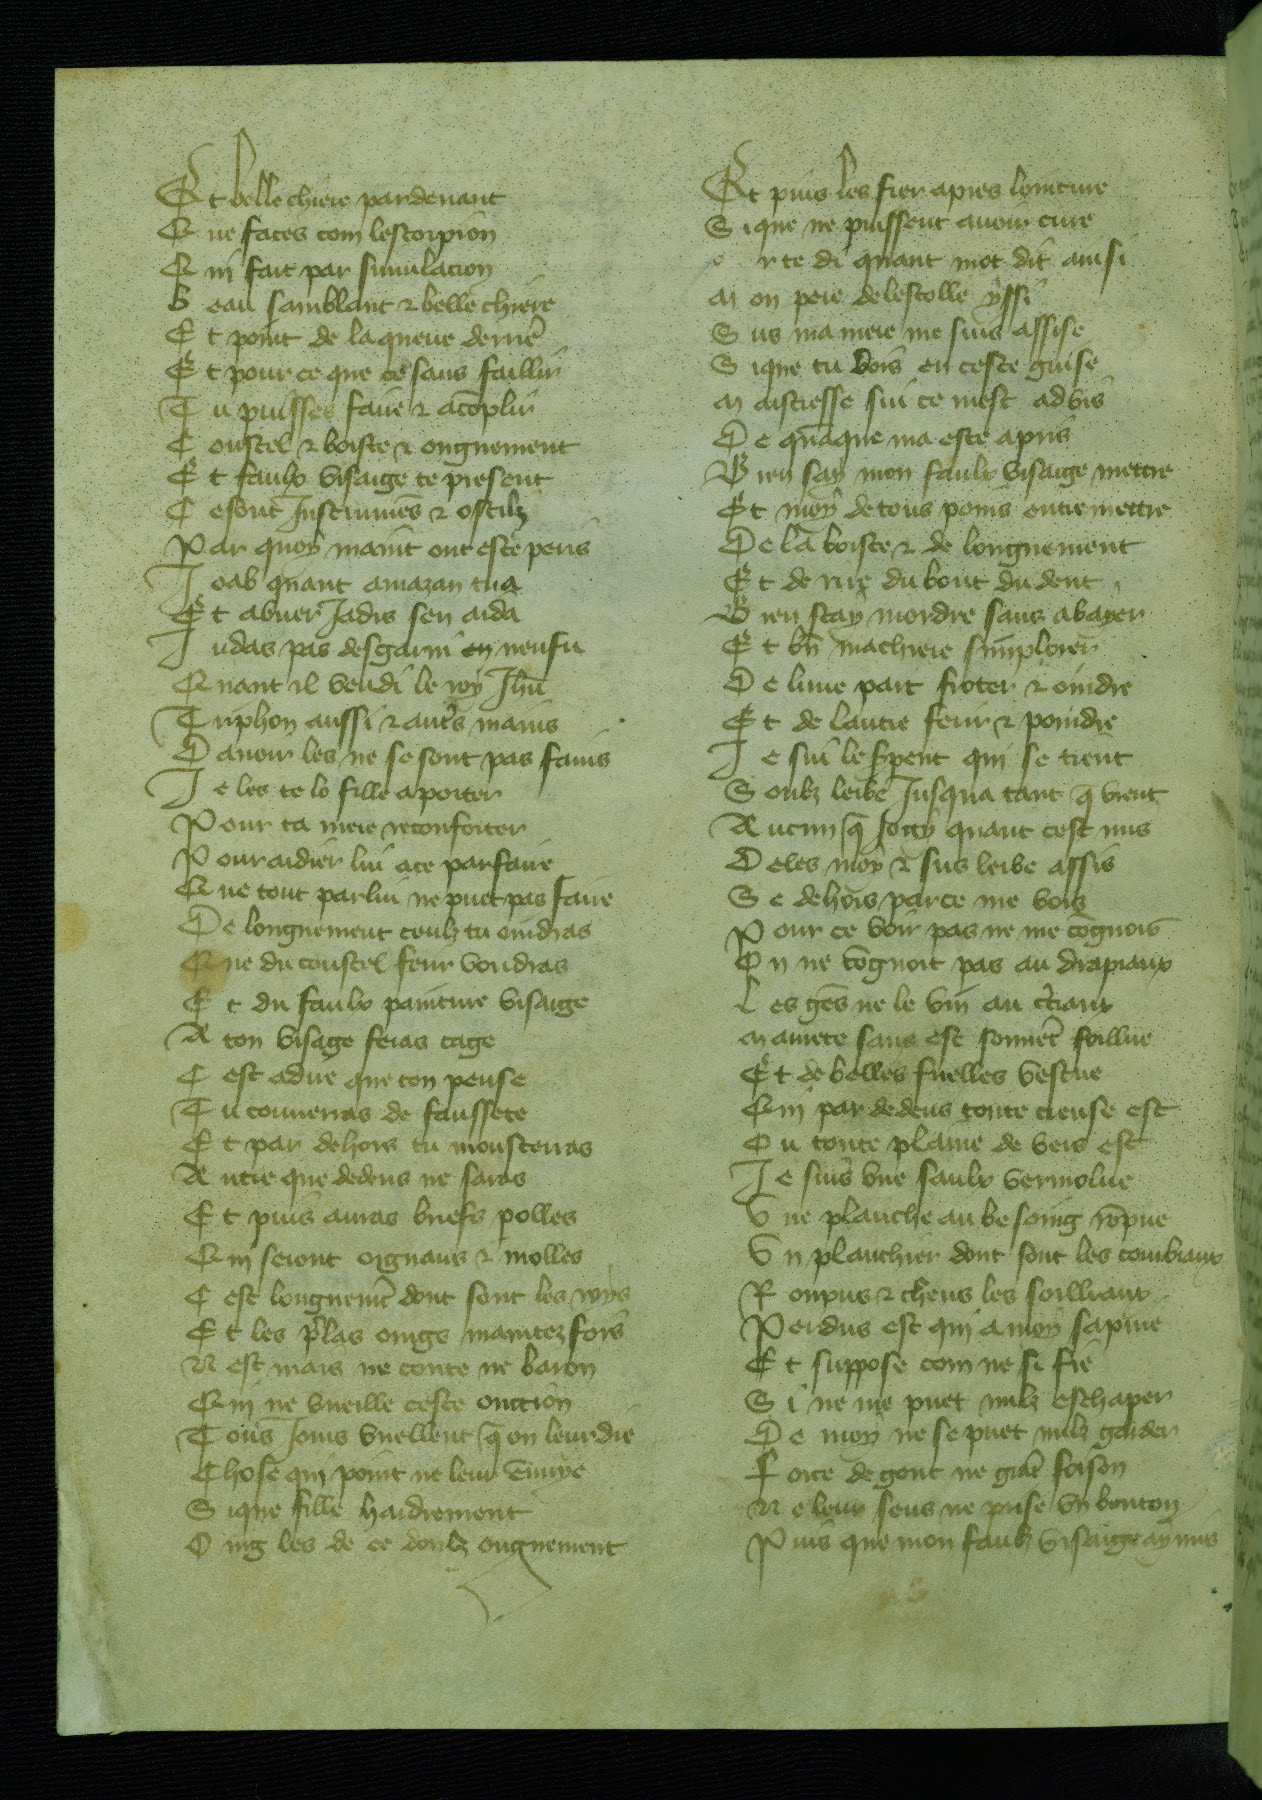 Et belle chiere par devant
Que faces com lescorpion
Qui fait par simulacion
Beau samblant & belle chiere
Et point de la queue derriē
Et pour ce que ce sans faillir
Tu puisses faire & acōplir
Coustel & boiste & ongnement
Et faulx visaige te present
Ce sont Instrumēs & ostilz
Par quoy maint ont este peris
Joab quant amazan tua
Et abner Jadis sen aida
Judas pas desgarni en neu fu
Quant il vendi le roy Jhū
Triphon aussi & autˢs mains
Davoir les ne se sont pas fains
Je les te lo fille a porter
Pour ta mere reconforter
Pour aidier lui a ce parfaire
Que tout par lui ne puet pas faire
De longnement ceulz tu oindras
Que du coustel ferir voudras
Et du faulx painture visaige
A ton visage feras cage
Cest a dire que ton pense
Tu couverras de faussete
Et par dehors tu monsterras
Autre que dedens ne saras
Et puis auras briefs polles
Qui seront oignans & molles
Cest longnemēt dont sont les roys
Et les p̄las oings maintez fois
Nest mais ne conte ne baron
Qui ne vueille ceste onction
Tous Jours vuellent q̄ on leur die
Chose qui point ne leur ennuye
Si que fille hardiement
Oing les de ce doulz ongnement
Et puis les fier apres lointure
Si que ne puissent avoir cure
Or te di quant mot dit ainsi
Mon pere de lescolle yssi
Sus ma mere me suis assise
Si que tu vois en ceste guise
Maistresse sui ce mest advis
De quāque ma este apris
Bien say mon faulx visaige mettre
Et moy de tous poins entremettre
De la boiste & de longnement
Et de rire du bout du dent
Bien scay mordre sans abayer
Et bn̄ machiere simploier
De lune part froter & oindre
Et de lautre ferir & poindre
Je sui le sp̄ent qui se tient
Soubz lerbe Jusqua tant q̄ vient
Aucun q̄ quant cest mis
Deles moy & sus lerbe assis
Se dehors par ce me vois
Pour ce voir pas ne me cōgnois
On ne cōgnoit pas au drapiaux
Les gēs ne le vin au cˢciaux
Mainte sans est sonnēt foillue
Et de belles fuelles vestue
Qui par dedens toute creuse est
Ou toute plaine de vers est
Je suis une saulx vermolue
Une planche au besoing rōpue
Un planchier dont sont les combraux
Ronpus & cheus les soilliaux
Perdus est qui a moy sapuie
Et suppose com ne si fie
Si ne me puet nulz eschaper
De moy ne se puet nulz garder
Force de gent ne grāt foison
Ne leur sens ne prise un bouton
Puis que mon faulz visaige ay mis